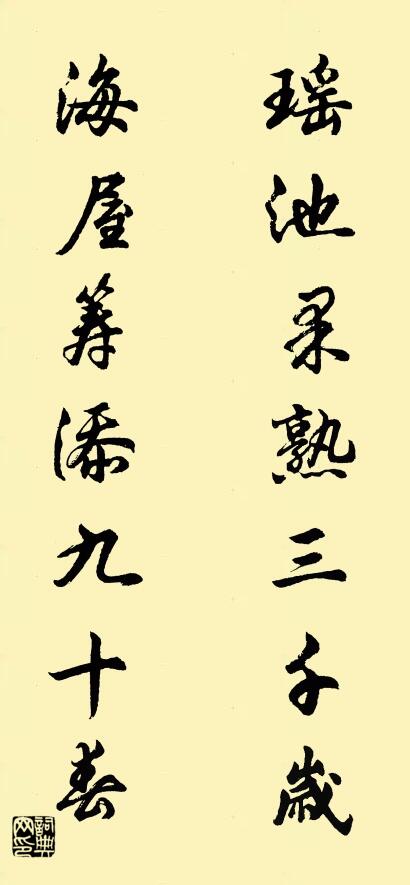 瑶池果熟三千歲
海屋筹添九十春
詞典网印